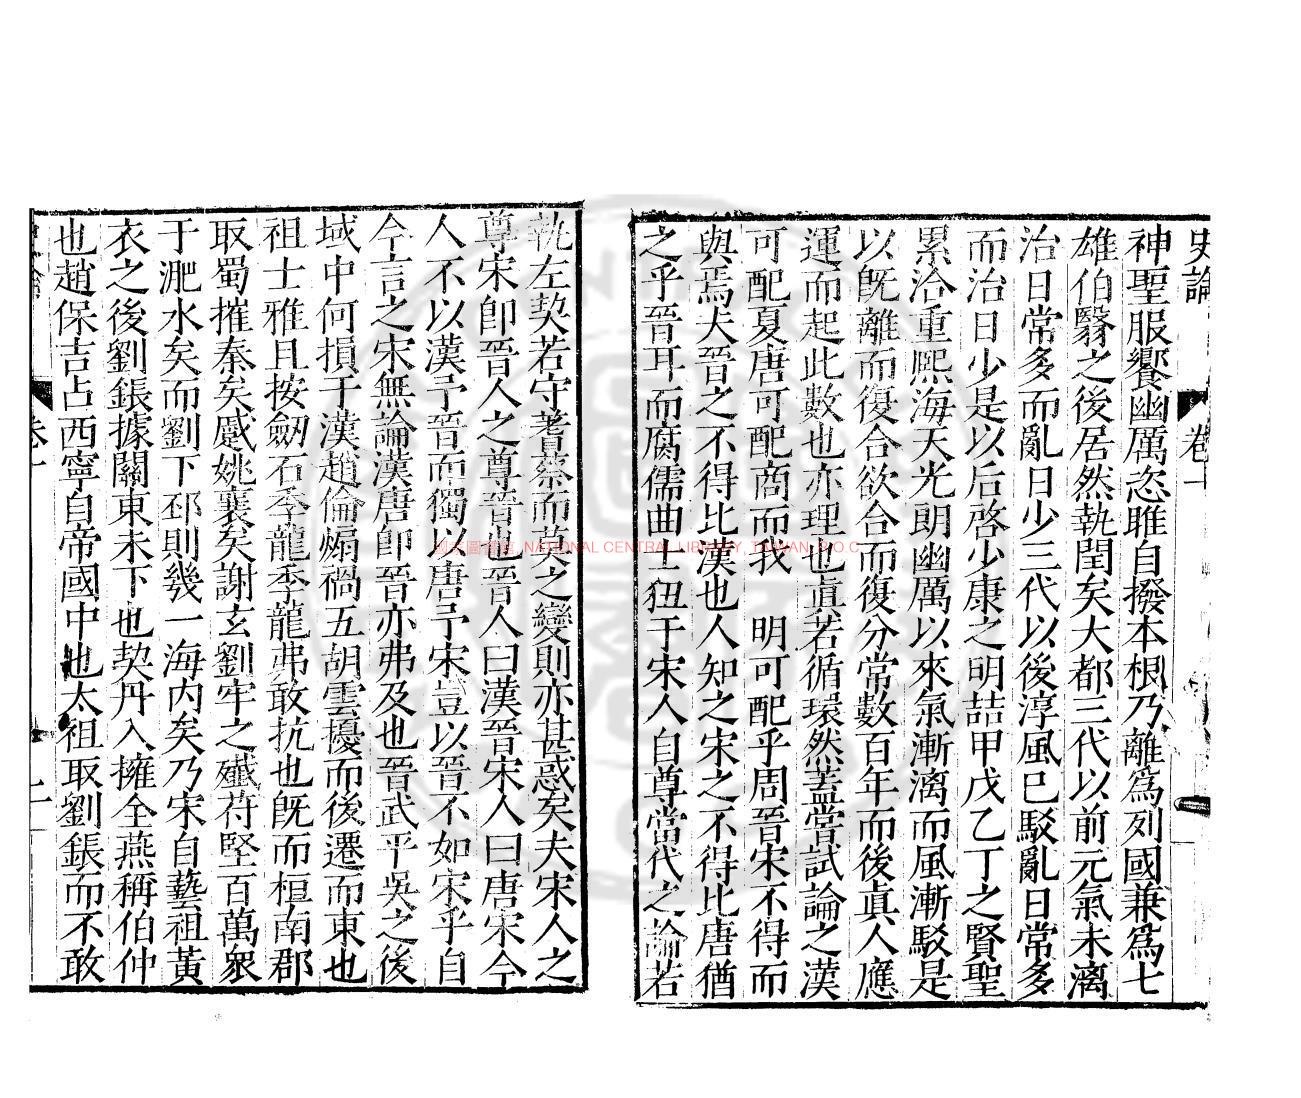 史論
卷一
神聖服饗幽厲恣睢自撥本根乃離爲列國兼爲七
雄伯翳之後居然執閏矣大都三代以前元氣未漓
治日常多而亂日少三代以後淳風已駁亂日常多
而治日少是以后啓少康之明喆甲戊乙丁之賢聖
累洽重熈海天光朗幽厲以來氣漸漓而風漸駁是
以旣離而復合欲合而復分常數百年而後眞人應
運而起此數也亦理也眞若循環然蓋嘗試論之漢
可配夏唐可配商而我 明可配乎周晉宋不得而
與焉夫晉之不得比漢也人知之宋之不得比唐猶
之乎晉耳而腐儒曲士狃于宋人自尊當代之論若
執左契若守蓍蔡而莫之變則亦甚惑矣夫宋人之
尊宋卽晉人之尊晉也晉人曰漢晉宋人曰唐宋今
人不以漢予晉而獨以唐予宋豈以晉不如宋乎自
今言之宋無論漢唐卽晉亦弗及也晉武平吳之後
域中何損于漢趙倫煽禍五胡雲擾而後遷而東也
祖士雅且按劒石季龍季龍弗敢抗也旣而桓南郡
取蜀摧秦矣蹙姚襄矣謝玄劉牢之殲苻堅百萬衆
于淝水矣而劉下邳則幾一海內矣乃宋自藝祖黃
衣之後劉鋹據關東未下也契丹入擁全燕稱伯仲
也趙保吉占西寧自帝國中也太祖取劉鋹而不敢
卷一
二
國家圖書館 NATIONAL CENTRAL LIBRARY, TAIWAN, R.O.C